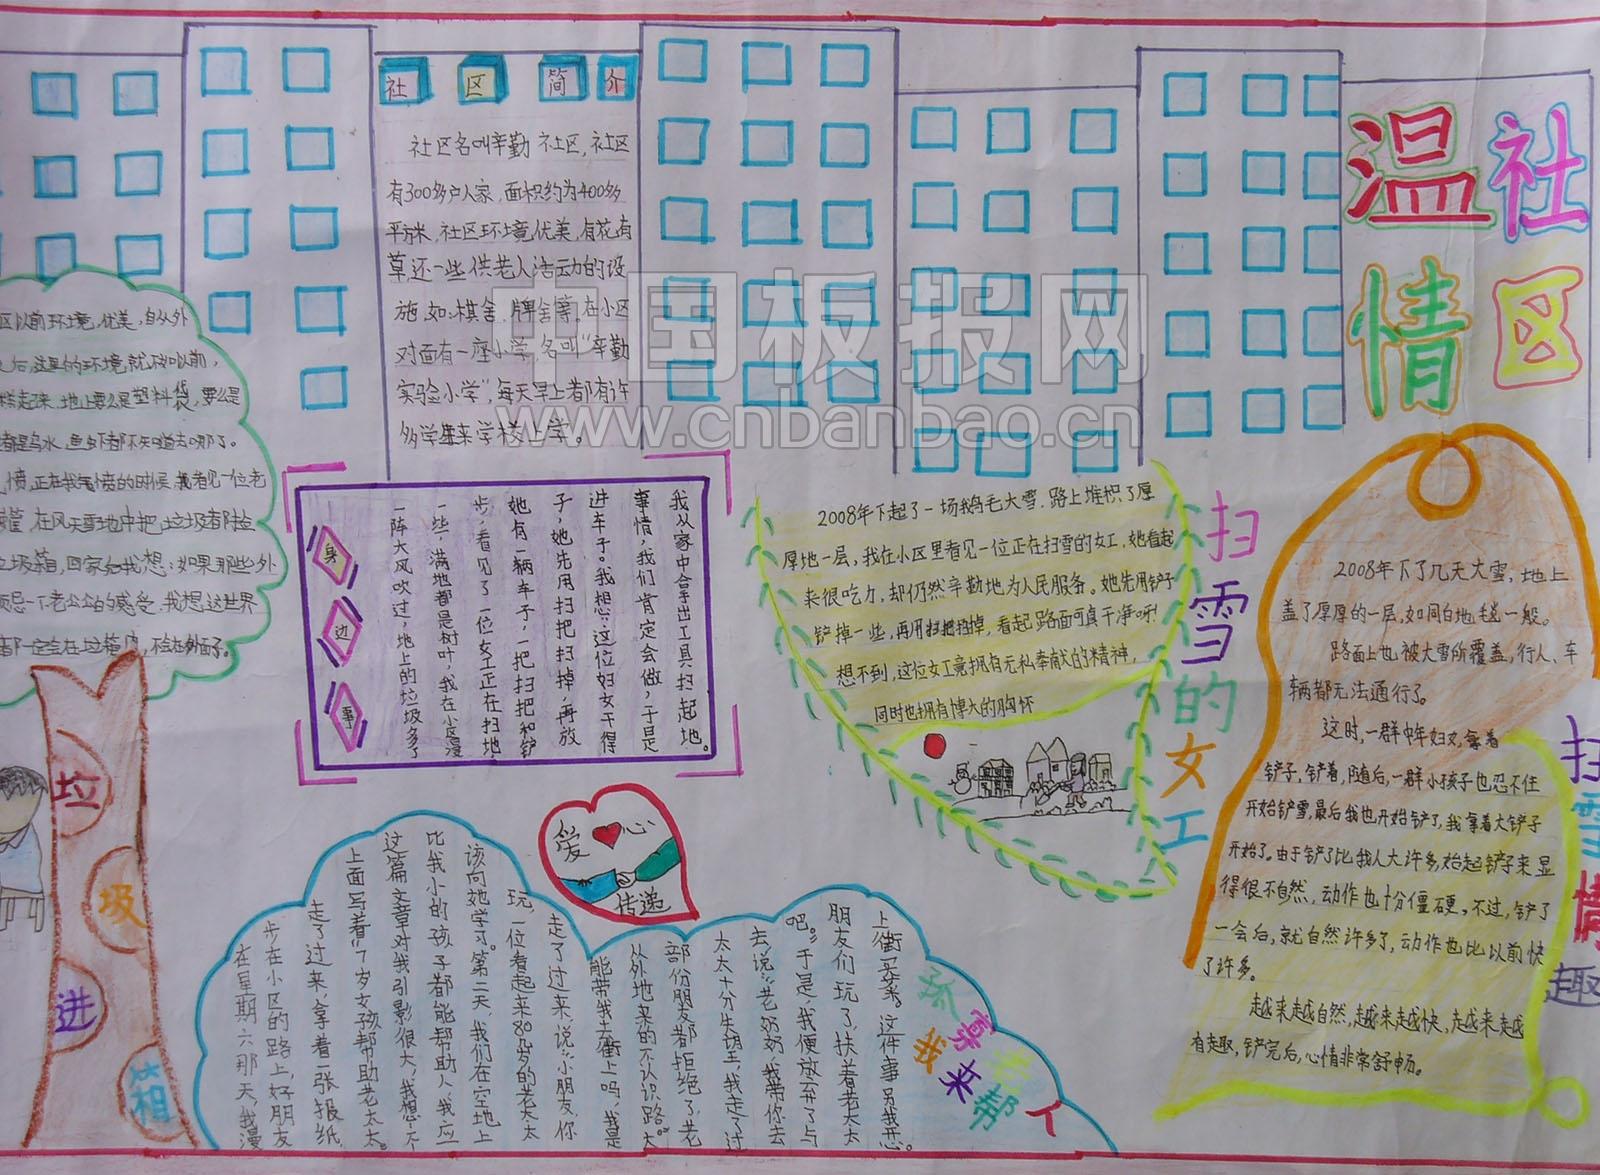 温情
社区
社区简介
社区名叫辛勤社区,社区
有300多户人家,面积约为400多
平方米,社区环境优美,有花有
草还一些供老人活动的设
施,如:棋舍、牌舍等。在小区
对面有一座小学,名叫“辛勤
实验小学”,每天早上都有许
多学生来学校上学。
中国板报网
www.cnbanbao.cn
区以前环境优美,自从外
后,这里的环境就不如以前,
起来,地上要么是塑料袋,要么是
都是污水,鱼虾都不知道去哪了。
愤,正在我气愤的时候,我看见一位老
在风天雪地中把垃圾都捡
垃圾箱,回家后我想:如果那些外
一下老公公的感受,我想这世界
都一定会在垃箱内,不会在外面了。
垃圾进箱
身边事
我从家中拿出工具扫起地。
事情,我们肯定会做,于是
进车子。我想:这位妇女干得
子,她先用扫把扫掉,再放
她有一辆车子,一把扫把和铲
步,看见了一位女工正在扫地,
一些,满地都是树叶,我在小区漫
一阵大风吹过,地上的垃圾多了
扫雪的女工
2008年下起了一场鹅毛大雪,路上堆积了厚
厚地一层,我在小区里看见一位正在扫雪的女工,她看起
来很吃力,却仍然辛勤地为人民服务。她先用铲子
铲掉一些,再用扫把扫掉,看起路面可真干净呀!
想不到,这位女工竟拥有无私奉献的精神,
同时也拥有博大的胸怀
扫雪情趣
2008年下了几天大雪,地上
盖了厚厚的一层,如同白地毯一般。
路面上也被大雪所覆盖,行人、车
辆都无法通行了。
这时,一群中年妇女拿着
铲子,铲着,随后,一群小孩子也忍不住
开始铲雪,最后我也开始铲了,我拿着大铲子
开始了。由于铲子比我人大许多,始起铲子来显
得很不自然,动作也十分僵硬。不过,铲了
一会后,就自然许多了,动作也比以前快
了许多。
越来越自然,越来越快,越来越
有趣,铲完后,心情非常舒畅。
爱心
传递
孤寡老人
我来帮
上街买菜。这件事另我开心。
朋友们玩了,扶着老太太
吧。”于是,我便放弃了与
去,说:“老奶奶,我带你去
太太十分失望,我走了过
部份朋友都拒绝了,老
从外地来的,不认识路。
能带我去街上吗?我是
走了过来,说:“小朋友,你
玩,一位看起来80几岁的老太太
该向她学习。第二天,我们在空地上
比我小的孩子都能帮助人,我应
这篇文章对我引影很大,我想:不
上面写着“7岁女孩帮助老太太。
走了过来,拿着一张报纸,
步在小区的路上,好朋友
在星期六那天,我漫